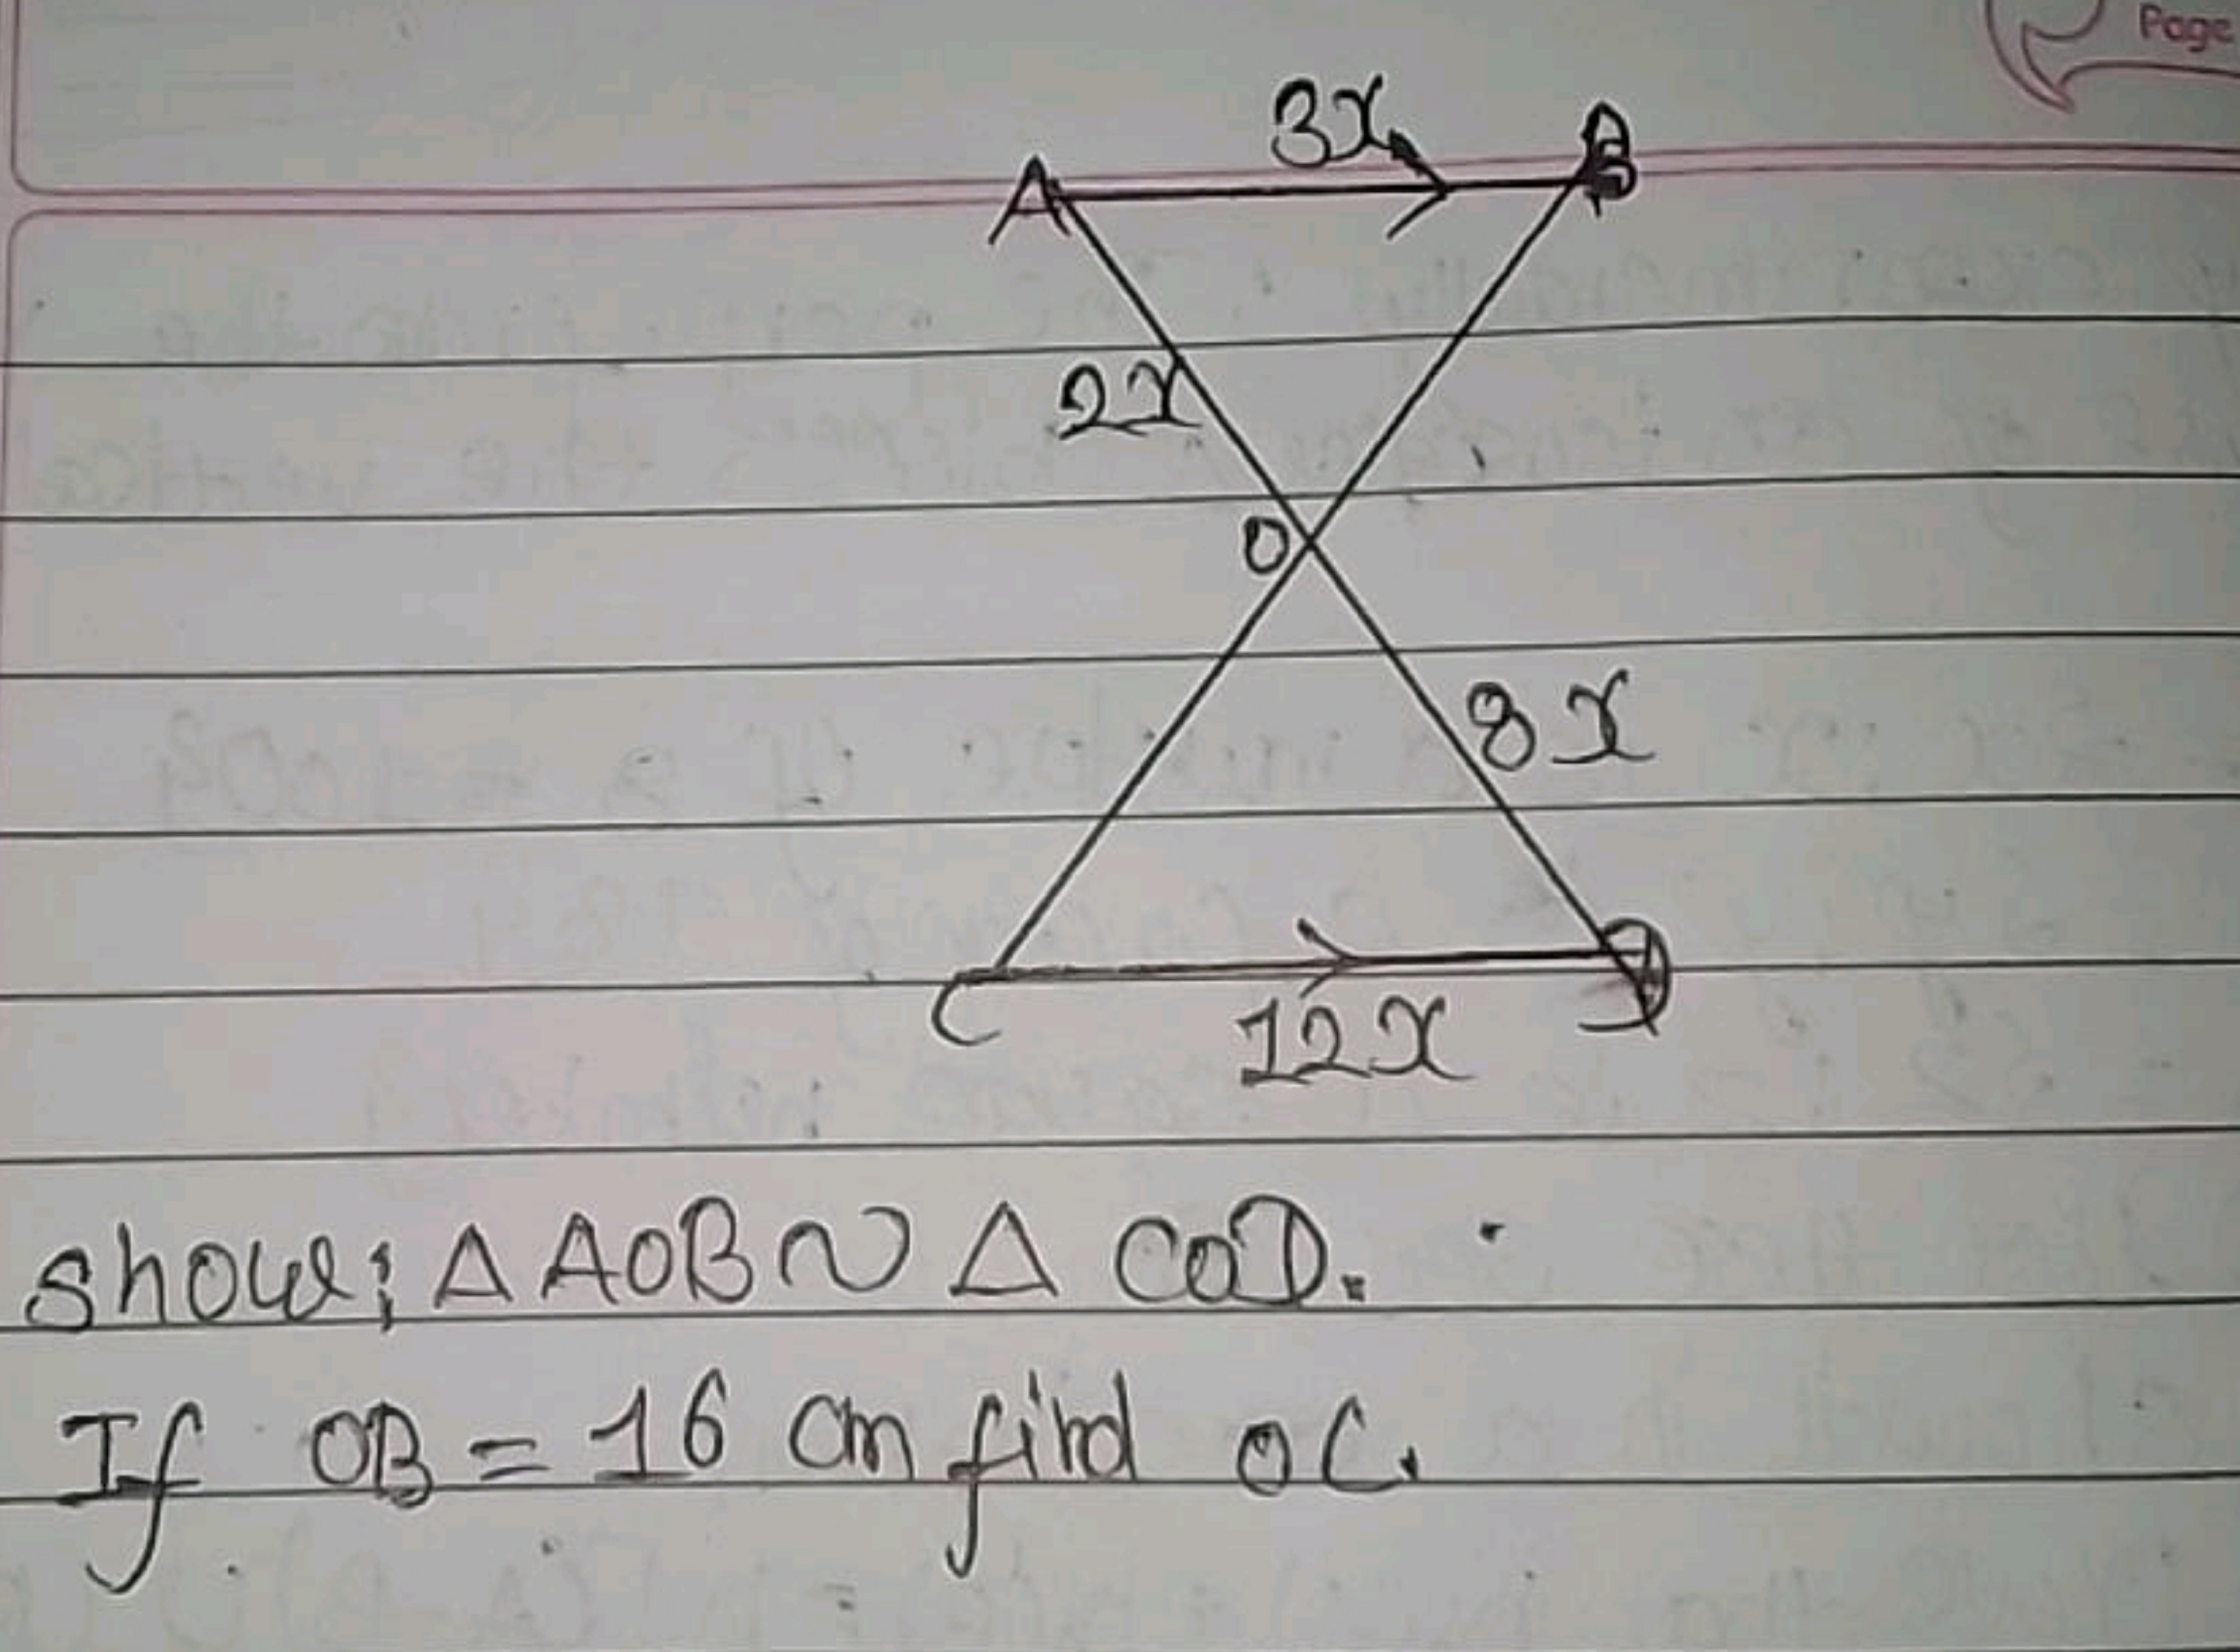 Page
3x
A B
2x
O
8x
C D
12x
show; Δ AOB ~ Δ COD.
If OB = 16 cm find OC.